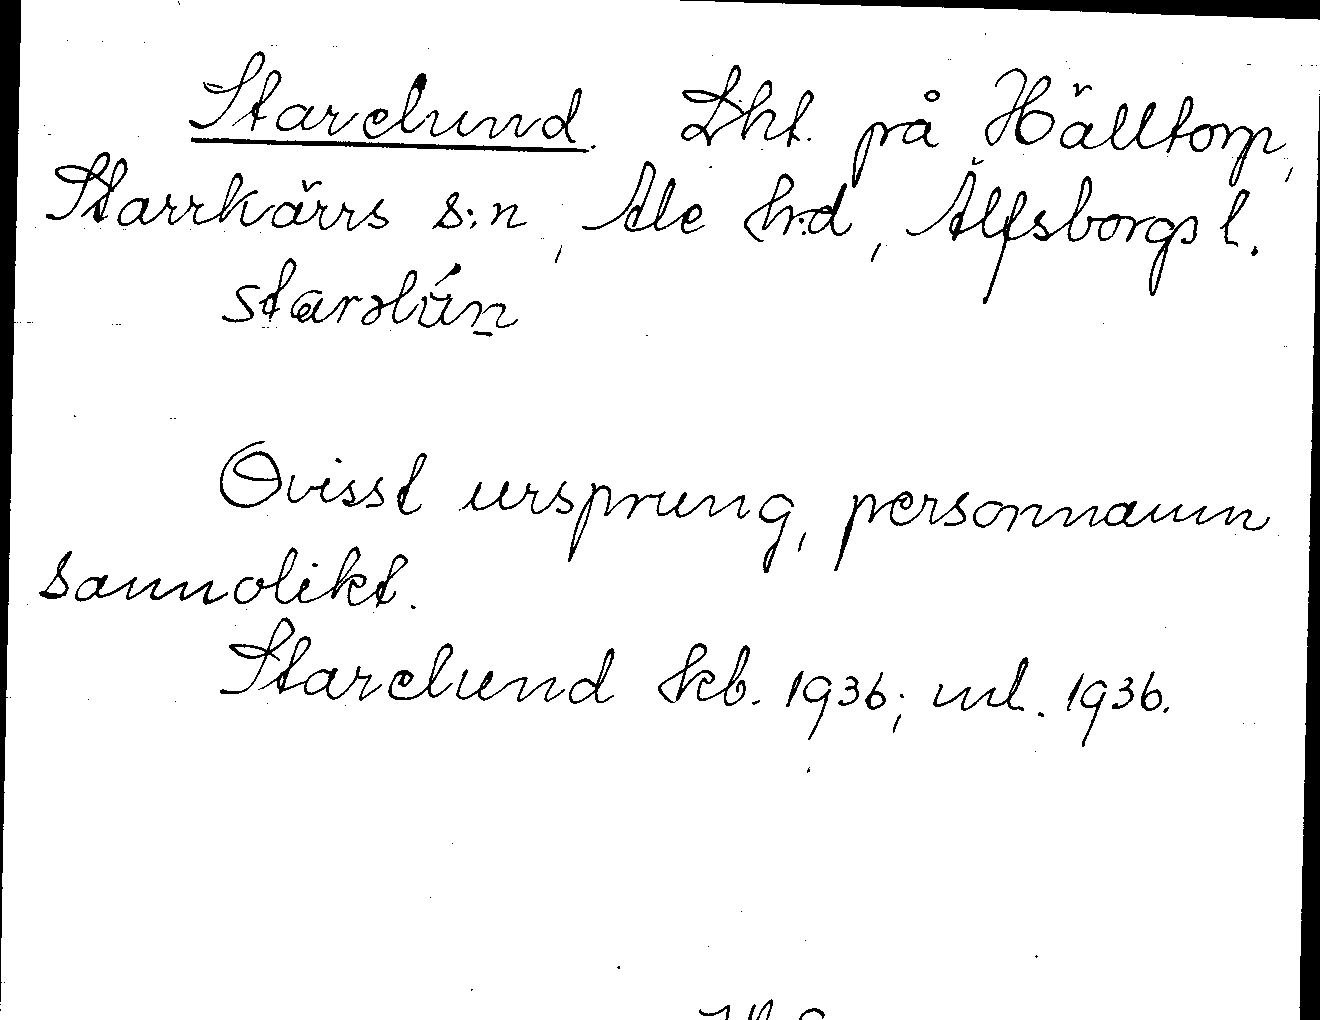 Starelund. Lht. på Hälltorp,
Starrkärrs s:n, Ale h:d, Älfsborgs l.
starəlún̠
Ovisst ursprung, personnamn
sannolikt.
Starelund kb. 1936; ml. 1936.